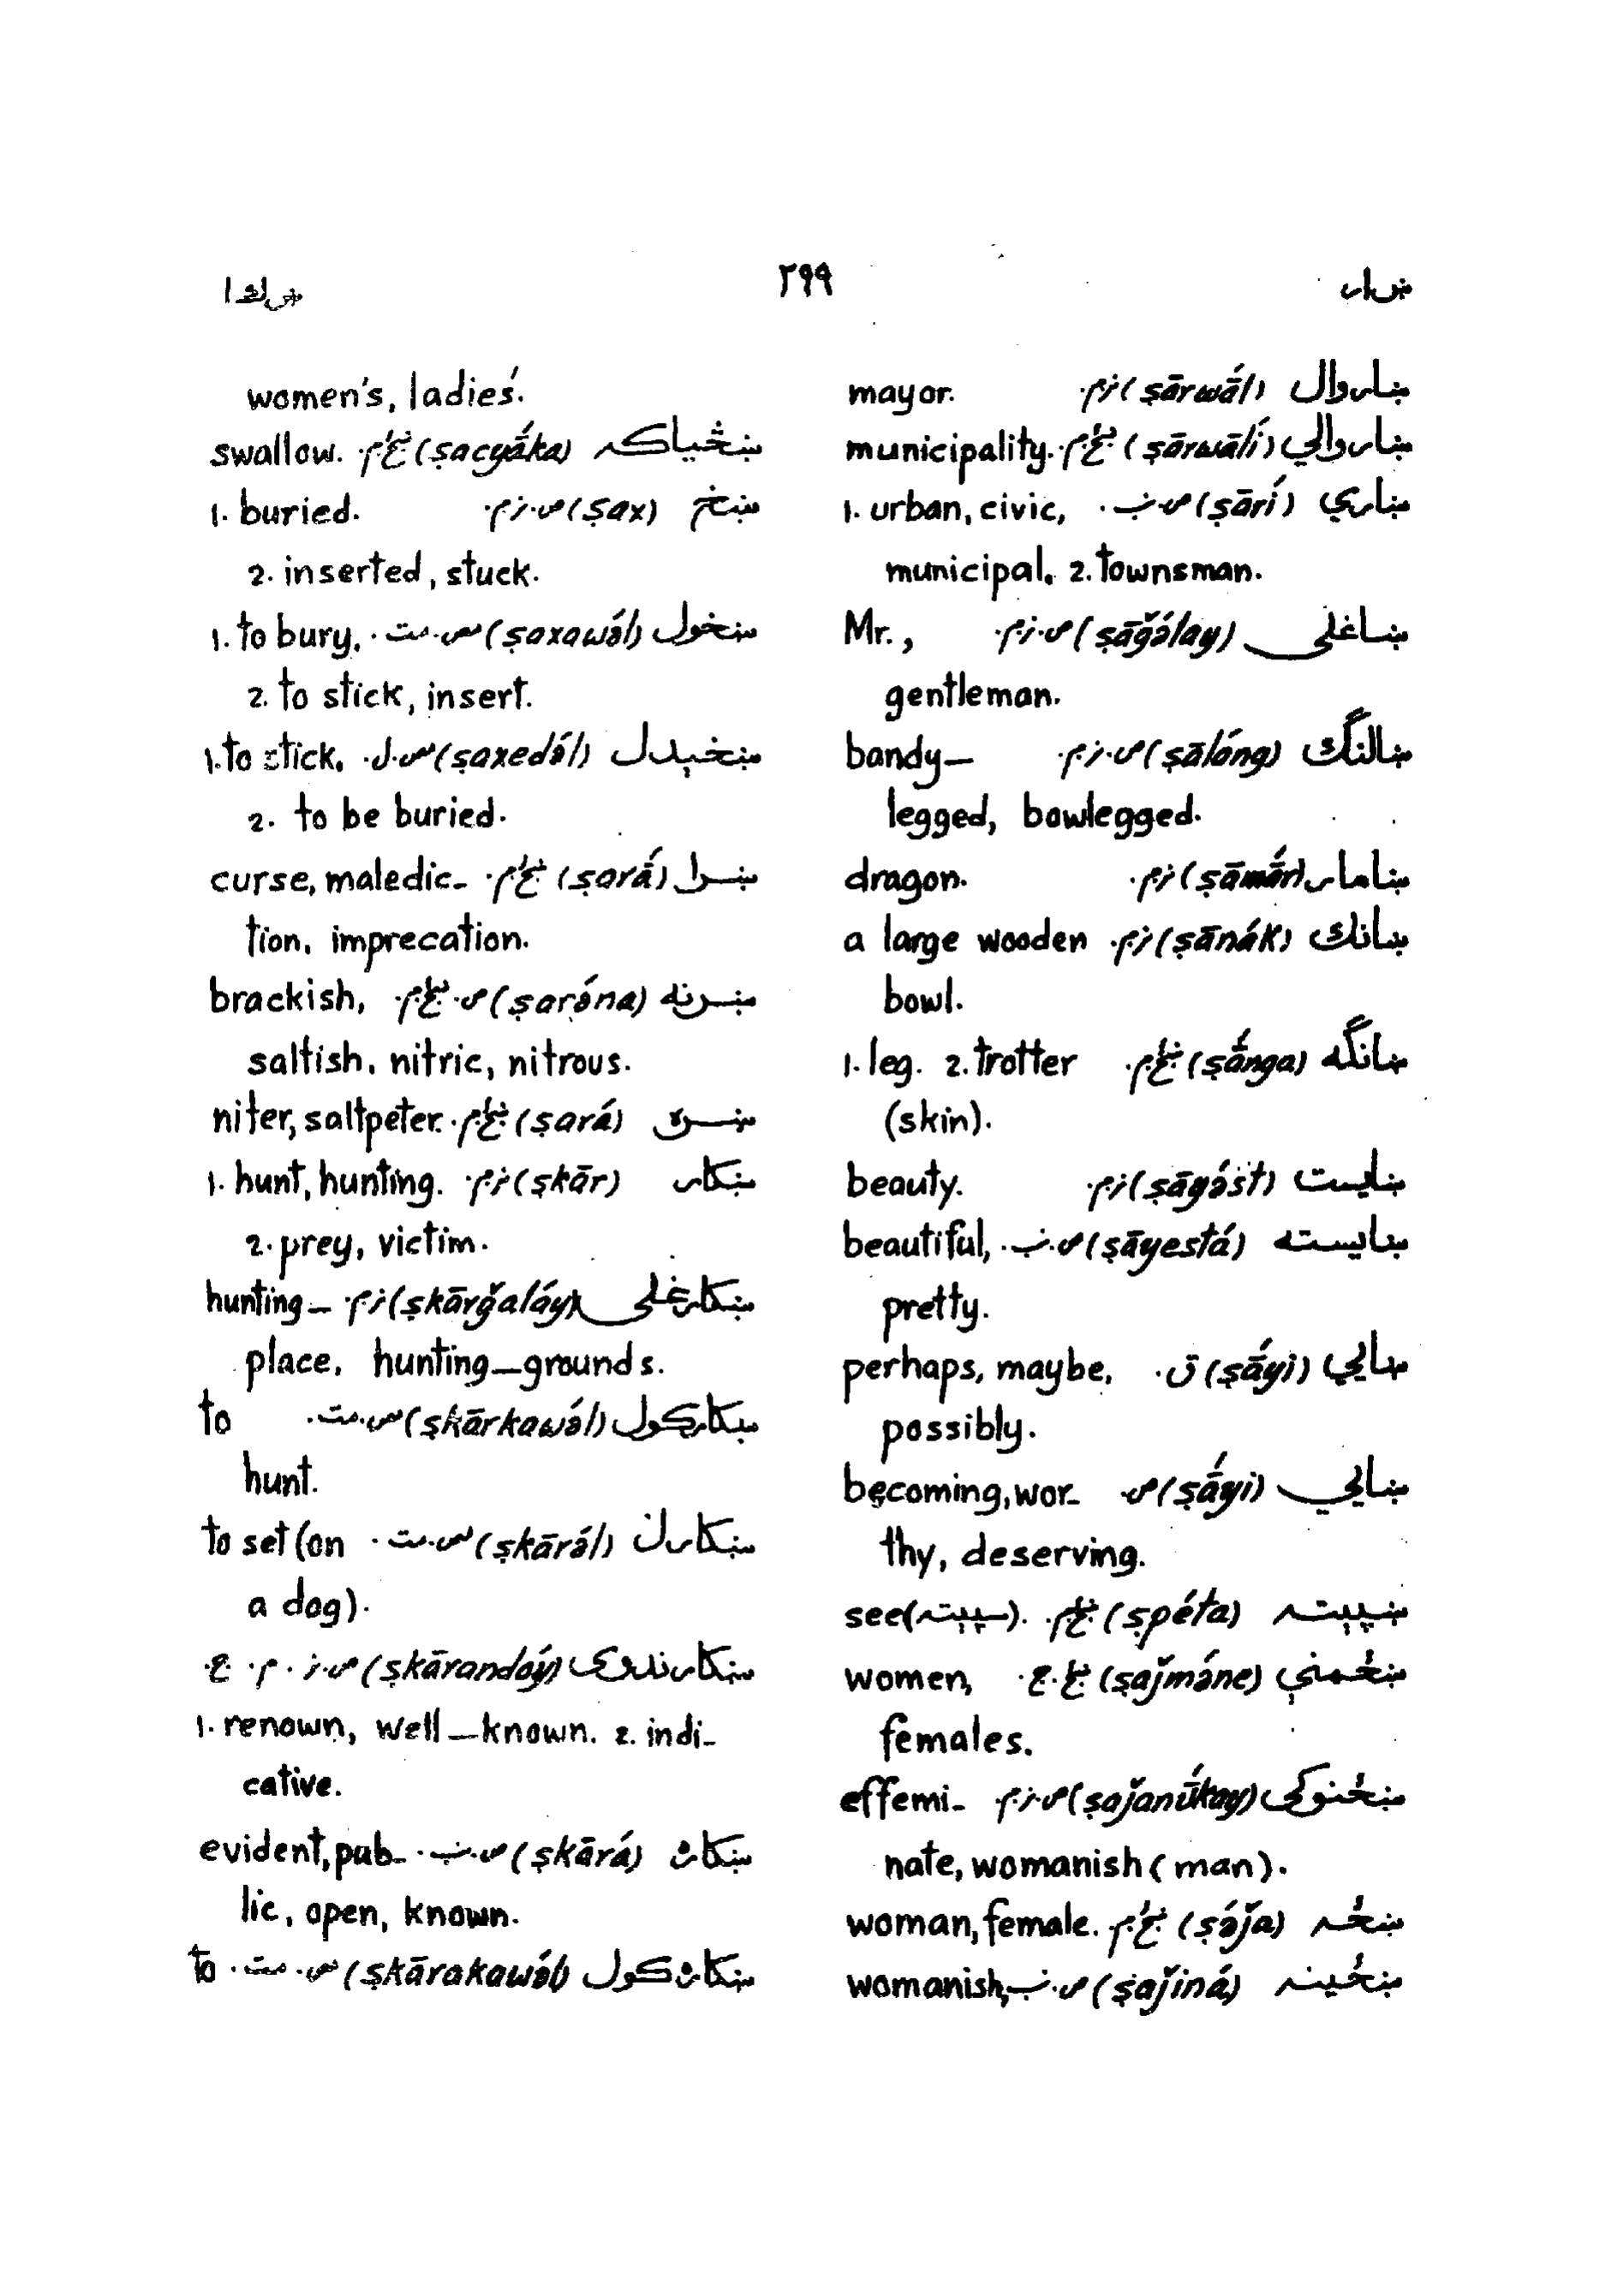 ښار ۲۹۹ ښکا
ښاروال (ṣārwā́l) ن.م. mayor.
ښاروالي (ṣārwālí) ښځ.م. municipality.
ښاري (ṣārí) ص.ب. 1. urban, civic,
municipal. 2. townsman.
ښاغلی (ṣāğə́lay) ص.ن.م. Mr.,
gentleman.
ښالنګ (ṣālə́ng) ص.ن.م. bandy-
legged, bowlegged.
ښامار (ṣāmā́r) ن.م. dragon.
ښانک (ṣānák) ن.م. a large wooden
bowl.
ښانګه (ṣā́nga) ښځ.م. 1. leg. 2. trotter
(skin).
ښایست (ṣāyə́st) ن.م. beauty.
ښایسته (ṣāyestá) ص.ب. beautiful,
pretty.
ښایي (ṣā́yi) ق. perhaps, maybe,
possibly.
ښایي (ṣā́yi) ص becoming, wor-
thy, deserving.
ښپېته (ṣpéta) ښځ.م. see (سپېته).
ښځمنې (ṣaǰmə́ne) ښځ.ج. women,
females.
ښځنوکی (ṣaǰanū́kay) ص.ن.م. effemi-
nate, womanish (man).
ښځه (ṣə́ǰa) ښځ.م. woman, female.
ښځینه (ṣaǰiná) ص.ب. womanish,
women's, ladies'.
ښڅیاکه (ṣacyā́ka) ښځ.م. swallow.
ښخ (ṣax) ص.ن.م. 1. buried.
2. inserted, stuck.
ښخول (ṣaxawə́l) مص.مت. 1. to bury.
2. to stick, insert.
ښخېدل (ṣaxedə́l) مص.ل. 1. to stick.
2. to be buried.
ښرا (ṣarā́) ښځ.م. curse, maledic-
tion, imprecation.
ښرنه (ṣarə́na) ص.ښځ.م. brackish,
saltish, nitric, nitrous.
ښره (ṣará) ښځ.م. niter, saltpeter.
ښکار (ṣkār) ن.م. 1. hunt, hunting.
2. prey, victim.
ښکارغلی (ṣkārğaláy) ن.م. hunting-
place, hunting-grounds.
ښکارکول (ṣkārkawə́l) مص.مت. to
hunt.
ښکارل (ṣkārə́l) مص.مت. to set (on
a dog).
ښکارندوی (ṣkārandóy) ص.ن.م.ج.
1. renown, well-known. 2. indi-
cative.
ښکاره (ṣkārá) ص.ب. evident, pub-
lic, open, known.
ښکاره کول (ṣkārakawə́l) مص.مت. to